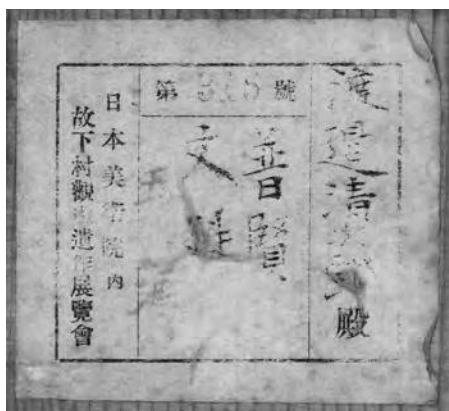 渡邊清殿
第號
普賢
文殊
日本美術院内
故下村觀山遺作展覽會